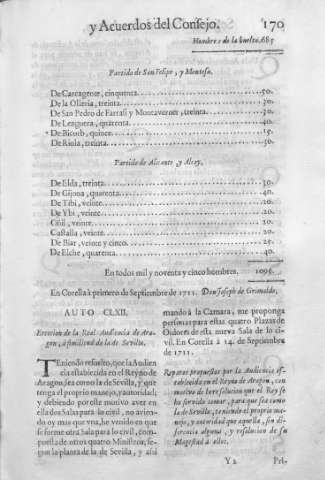 y Acuerdos del Consejo. 170
Hombres de la buelta. 685
Partido de San Felipe, y Montesa.
De Carcagente, cinquenta. 50.
De la Olleria, treinta. 30.
De San Pedro de y Montaverner, treinta. 30.
De Enguera, quarenta. 40.
De Bicorb, quince. 15.
De Riola, treinta. 30.
Partido de Alicante, y Alcoy.
De Elda, treinta. 30.
De Gijona, quarenta. 40.
De Tibi, veinte. 20.
De Ybi, veinte. 20.
Onil, veinte. 20.
Castalla, veinte. 20.
De Biar, veinte y cinco. 25.
De Elche, quarenta. 40.
En todos mil y noventa y cinco hombres. 1095.
En Corella à primero de Septiembre de 1711. Don Joseph de Grimaldo.
AUTO CLXII.
Ereccion de la Real Audiencia de Aragon, à similitud de la de Sevilla.
TEniendo resuelto, que la Audiencia
establecida en el Reyno de
Aragon, sea como la de Sevilla, y que
tenga el proprio manejo, y autoridad;
y debiendo por este motivo aver en
ella dos Salas para lo civil, no aviendo
oy mas que vna, he venido en que
se forme otra Sala para lo civil, compuesta
de otros quatro Ministros, segun
la planta de la de Sevilla, y assi
mando à la Camara, me proponga
personas para estas quatro Plazas de
Oidores de esta nueva Sala de lo civil.
En Corella à 14. de Septiembre
de 1711.
Reparos propuestos por la Audiencia establecida
en el Reyno de Aragon, con
motivo de la resolucion que el Rey se
ha servido tomar, para que sea como
la de Sevilla, teniendo el proprio manejo,
y autoridad que aquella, sin diferencia
alguna, y resolucion de su
Magestad à ellos.
Y 2